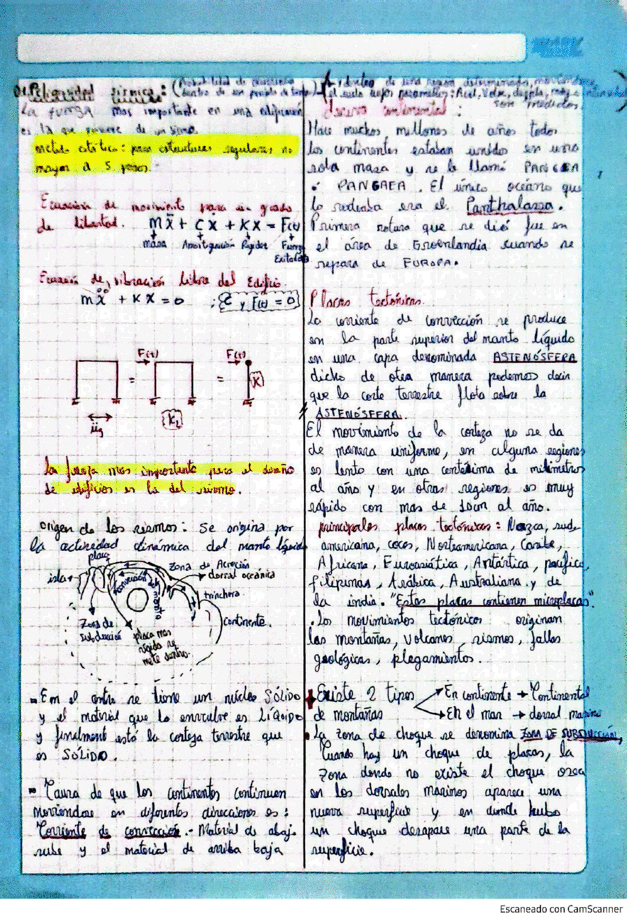 Peligrosidad sísmica: (Probabilidad de ocurrencia dentro de un periodo de tiempo y dentro de una región determinada, moviéndose
el suelo bajo parámetros: Acel, Veloc, despla, mag e intensidad son medidos.)
La fuerza mas importante en una edificación
es la que proviene de un sismo.
metodo estático: para estructuras regulares no
mayor a 5 pisos.
Ecuación de movimiento para un grado
de libertad. mẍ + cẋ + Kx = F(t)
masa Amortiguación Rigidez Fuerza
Exitadora
Ecuación de vibración libre del Edificio
mẍ + Kx = 0 ; C y F(t) = 0
F(t) F(t)
= = K
üg K₁
La fuerza mas importante para el diseño
de edificios es la del sismo.
origen de los sismos: Se origina por
la actividad dinámica del manto líquido
placa
Zona de Acreción
isla
dorsal oceánica
trinchera
continente.
Zona de
Subducción
placa mas
rígida se
mete dentro.
- En el centro se tiene un nucleo SÓLIDO
y el material que lo envuelve es LÍQUIDO
y finalmente está la corteza terrestre que
es SÓLIDO.
- Causa de que los continentes continuen
moviendose en diferentes direcciones es:
Corriente de convección.- Material de abajo
sube y el material de arriba baja
deriva continental:
Hace muchos, millones de años todos
los continentes estaban unidos en una
sola masa y se le llamó PANGEA
ó PANGAEA. El único océano que
lo rodeaba era el Panthalassa.
Primera rotura que se dió fue en
el área de Groenlandia cuando se
separa de EUROPA.
Placas tectónicas.
La corriente de convección se produce
en la parte superior del manto líquido
en una capa denominada ASTENÓSFERA
dicho de otra manera podemos decir
que la corte terrestre flota sobre la
ASTENÓSFERA.
El movimiento de la corteza no se da
de manera uniforme, en alguna regiones
es lento con una centésima de milímetros
al año y en otras regiones es muy
rápido con mas de 10cm al año.
principales placas tectónicas: Nazca, sud-
americana, cocos, Norteamericana, Caribe,
Africana, Euroasiática, Antártica, pacífico,
filipinas, Arábica, Australiana y de
la india. "Estas placas contienen microplacas".
• Los movimientos tectónicos originan
las montañas, volcanes, sismos, fallas
geológicas, plegamientos.
Existe 2 tipos En continente → Continental
de montañas En el mar → dorsal marina
• La zona de choque se denomina ZONA DE SUBDUCCIÓN,
Cuando hay un choque de placas, la
zona donde no existe el choque osea
en los dorsales marinos aparece una
nueva superficie y en donde hubo
un choque desapare una parte de la
superficie.
Escaneado con CamScanner